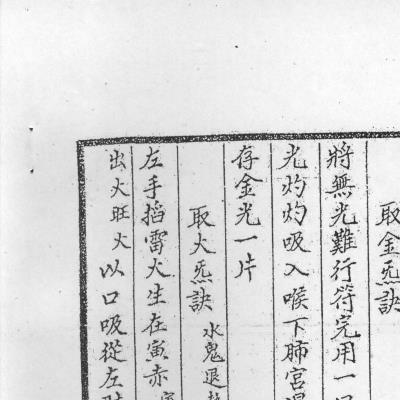 取金炁訣
將無光難行符完用一口
光灼灼吸入喉下肺宮
存金光一片
取火炁訣
水鬼退
左手掐雷火生在寅赤
出火旺火以口吸從左